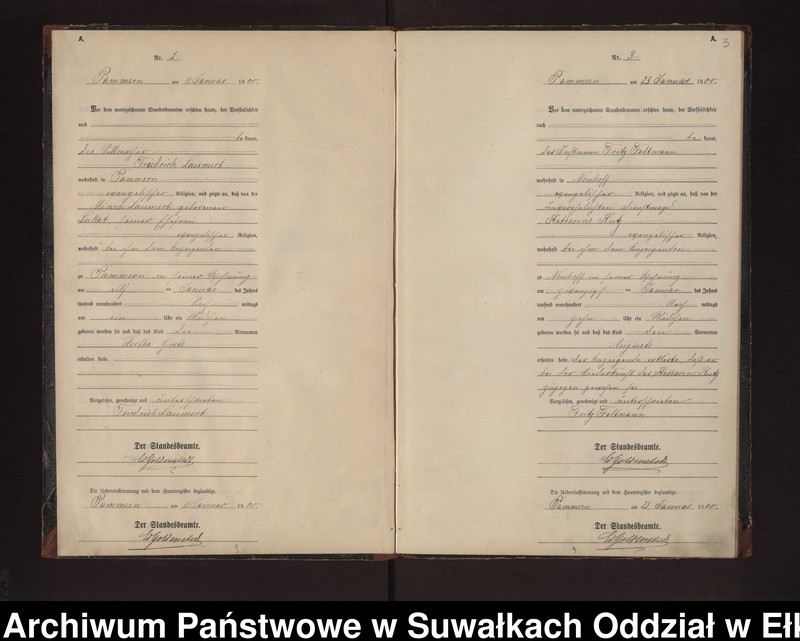 A.
Nr. 2
Pammern am Januar 1900.
Vor dem unterzeichneten Standesbeamten erschien heute, der Persönlichkeit
nach
be kannt,
der
Friedrich Laumert
wohnhaft in Pammern
evangelischer Religion, und zeigte an, daß von der
Laumert geborenen
seiner Ehefrau
evangelischer Religion,
wohnhaft bei ihm dem Anzeigenden
zu Pammern in seiner Wohnung
am elf ten Januar des Jahres
tausend neunhundert Nach mittags
um ein Uhr ein Mädchen
geboren worden sei und daß das Kind den Vornamen
Hertha
erhalten habe.
Vorgelesen, genehmigt und unterschrieben
Friedrich Laumert
Der Standesbeamte.
Die Uebereinstimmung mit dem Hauptregister beglaubigt.
Pammern am Januar 1900.
Der Standesbeamte.
A.
3
Nr. 3
Pammern am 23 Januar 1900.
Vor dem unterzeichneten Standesbeamten erschien heute, der Persönlichkeit
nach
be kannt,
der Fritz Foltmann
wohnhaft in Neuhoff
evangelischer Religion, und zeigte an, daß von der
unverehelichten Dienstmagd
Katharine
evangelischer Religion,
wohnhaft bei ihm dem Anzeigenden
zu Neuhoff in seiner Wohnung
am ten Januar des Jahres
tausend neunhundert Nach mittags
um zehn Uhr ein Mädchen
geboren worden sei und daß das Kind den Vornamen
Auguste
erhalten habe. Der Anzeigende erklärte, daß er
bei der Niederkunft der Katharine
zugegen gewesen sei.
Vorgelesen, genehmigt und unterschrieben
Fritz Foltmann
Der Standesbeamte.
Die Uebereinstimmung mit dem Hauptregister beglaubigt.
Pammern am 23 Januar 1900.
Der Standesbeamte.
Archiwum Państwowe w Suwałkach Oddział w Eł